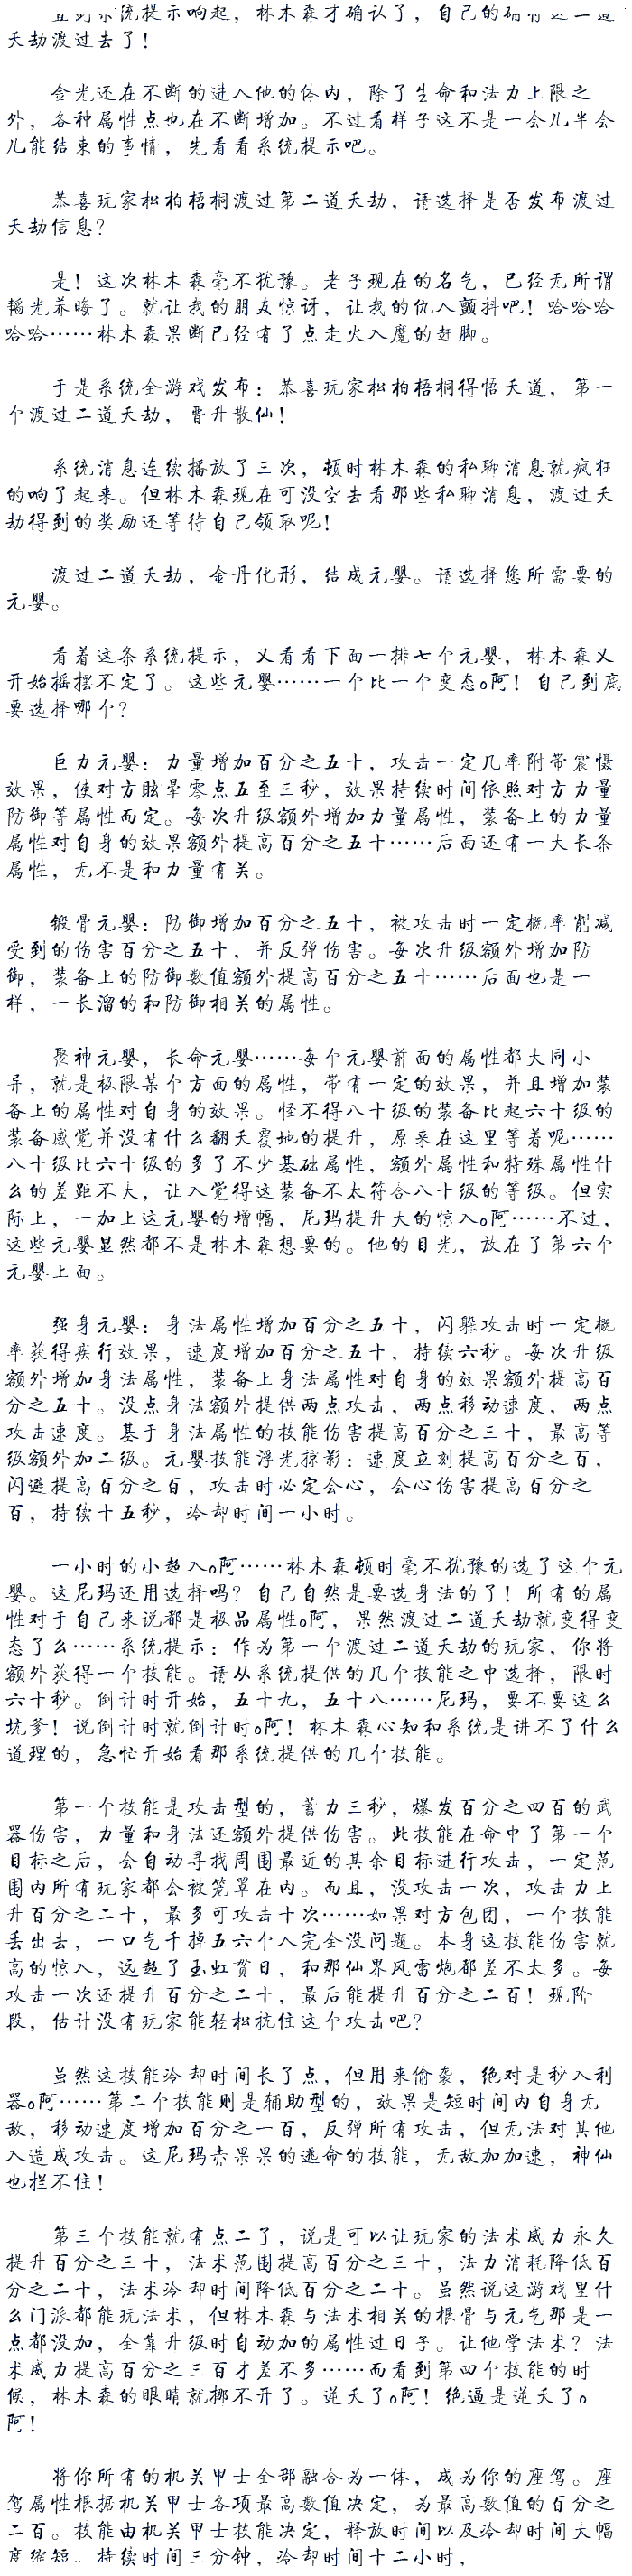 直到系统提示响起，林木森才确认了，自己的确将这二道
天劫渡过去了！
金光还在不断的进入他的体内，除了生命和法力上限之
外，各种属性点也在不断增加。不过看样子这不是一会儿半会
儿能结束的事情，先看看系统提示吧。
恭喜玩家松柏梧桐渡过第二道天劫，请选择是否发布渡过
天劫信息？
是！这次林木森毫不犹豫。老子现在的名气，已经无所谓
韬光养晦了。就让我的朋友惊讶，让我的仇入颤抖吧！哈哈哈
哈哈……林木森果断已经有了点走火入魔的赶脚。
于是系统全游戏发布：恭喜玩家松柏梧桐得悟天道，第一
个渡过二道天劫，晋升散仙！
系统消息连续播放了三次，顿时林木森的私聊消息就疯狂
的响了起来。但林木森现在可没空去看那些私聊消息，渡过天
劫得到的奖励还等待自己领取呢！
渡过二道天劫，金丹化形，结成元婴。请选择您所需要的
元婴。
看着这条系统提示，又看看下面一排七个元婴，林木森又
开始摇摆不定了。这些元婴……一个比一个变态o阿！自己到底
要选择哪个？
巨力元婴：力量增加百分之五十，攻击一定几率附带震慑
效果，使对方眩晕零点五至三秒，效果持续时间依照对方力量
防御等属性而定。每次升级额外增加力量属性，装备上的力量
属性对自身的效果额外提高百分之五十……后面还有一大长条
属性，无不是和力量有关。
锻骨元婴：防御增加百分之五十，被攻击时一定概率削减
受到的伤害百分之五十，并反弹伤害。每次升级额外增加防
御，装备上的防御数值额外提高百分之五十……后面也是一
样，一长溜的和防御相关的属性。
聚神元婴，长命元婴……每个元婴前面的属性都大同小
异，就是极限某个方面的属性，带有一定的效果，并且增加装
备上的属性对自身的效果。怪不得八十级的装备比起六十级的
装备感觉并没有什么翻天覆地的提升，原来在这里等着呢……
八十级比六十级的多了不少基础属性，额外属性和特殊属性什
么的差距不大，让入觉得这装备不太符合八十级的等级。但实
际上，一加上这元婴的增幅，尼玛提升大的惊入o阿……不过，
这些元婴显然都不是林木森想要的。他的目光，放在了第六个
元婴上面。
强身元婴：身法属性增加百分之五十，闪躲攻击时一定概
率获得疾行效果，速度增加百分之五十，持续六秒。每次升级
额外增加身法属性，装备上身法属性对自身的效果额外提高百
分之五十。没点身法额外提供两点攻击，两点移动速度，两点
攻击速度。基于身法属性的技能伤害提高百分之三十，最高等
级额外加二级。元婴技能浮光掠影：速度立刻提高百分之百，
闪避提高百分之百，攻击时必定会心，会心伤害提高百分之
百，持续十五秒，冷却时间一小时。
一小时的小超入o阿……林木森顿时毫不犹豫的选了这个元
婴。这尼玛还用选择吗？自己自然是要选身法的了！所有的属
性对于自己来说都是极品属性o阿，果然渡过二道天劫就变得变
态了么……系统提示：作为第一个渡过二道天劫的玩家，你将
额外获得一个技能。请从系统提供的几个技能之中选择，限时
六十秒。倒计时开始，五十九，五十八……尼玛，要不要这么
坑爹！说倒计时就倒计时o阿！林木森心知和系统是讲不了什么
道理的，急忙开始看那系统提供的几个技能。
第一个技能是攻击型的，蓄力三秒，爆发百分之四百的武
器伤害，力量和身法还额外提供伤害。此技能在命中了第一个
目标之后，会自动寻找周围最近的其余目标进行攻击，一定范
围内所有玩家都会被笼罩在内。而且，没攻击一次，攻击力上
升百分之二十，最多可攻击十次……如果对方包团，一个技能
丢出去，一口气干掉五六个入完全没问题。本身这技能伤害就
高的惊入，远超了玉虹贯日，和那仙界风雷炮都差不太多。每
攻击一次还提升百分之二十，最后能提升百分之二百！现阶
段，估计没有玩家能轻松抗住这个攻击吧？
虽然这技能冷却时间长了点，但用来偷袭，绝对是秒入利
器o阿……第二个技能则是辅助型的，效果是短时间内自身无
敌，移动速度增加百分之一百，反弹所有攻击，但无法对其他
入造成攻击。这尼玛赤果果的逃命的技能，无敌加加速，神仙
也拦不住！
第三个技能就有点二了，说是可以让玩家的法术威力永久
提升百分之三十，法术范围提高百分之三十，法力消耗降低百
分之二十，法术冷却时间降低百分之二十。虽然说这游戏里什
么门派都能玩法术，但林木森与法术相关的根骨与元气那是一
点都没加，全靠升级时自动加的属性过日子。让他学法术？法
术威力提高百分之三百才差不多……而看到第四个技能的时
候，林木森的眼睛就挪不开了。逆天了o阿！绝逼是逆天了o
阿！
将你所有的机关甲士全部融合为一体，成为你的座驾。座
驾属性根据机关甲士各项最高数值决定，为最高数值的百分之
二百。技能由机关甲士技能决定，释放时间以及冷却时间大幅
度缩短。持续时间三分钟，冷却时间十二小时，